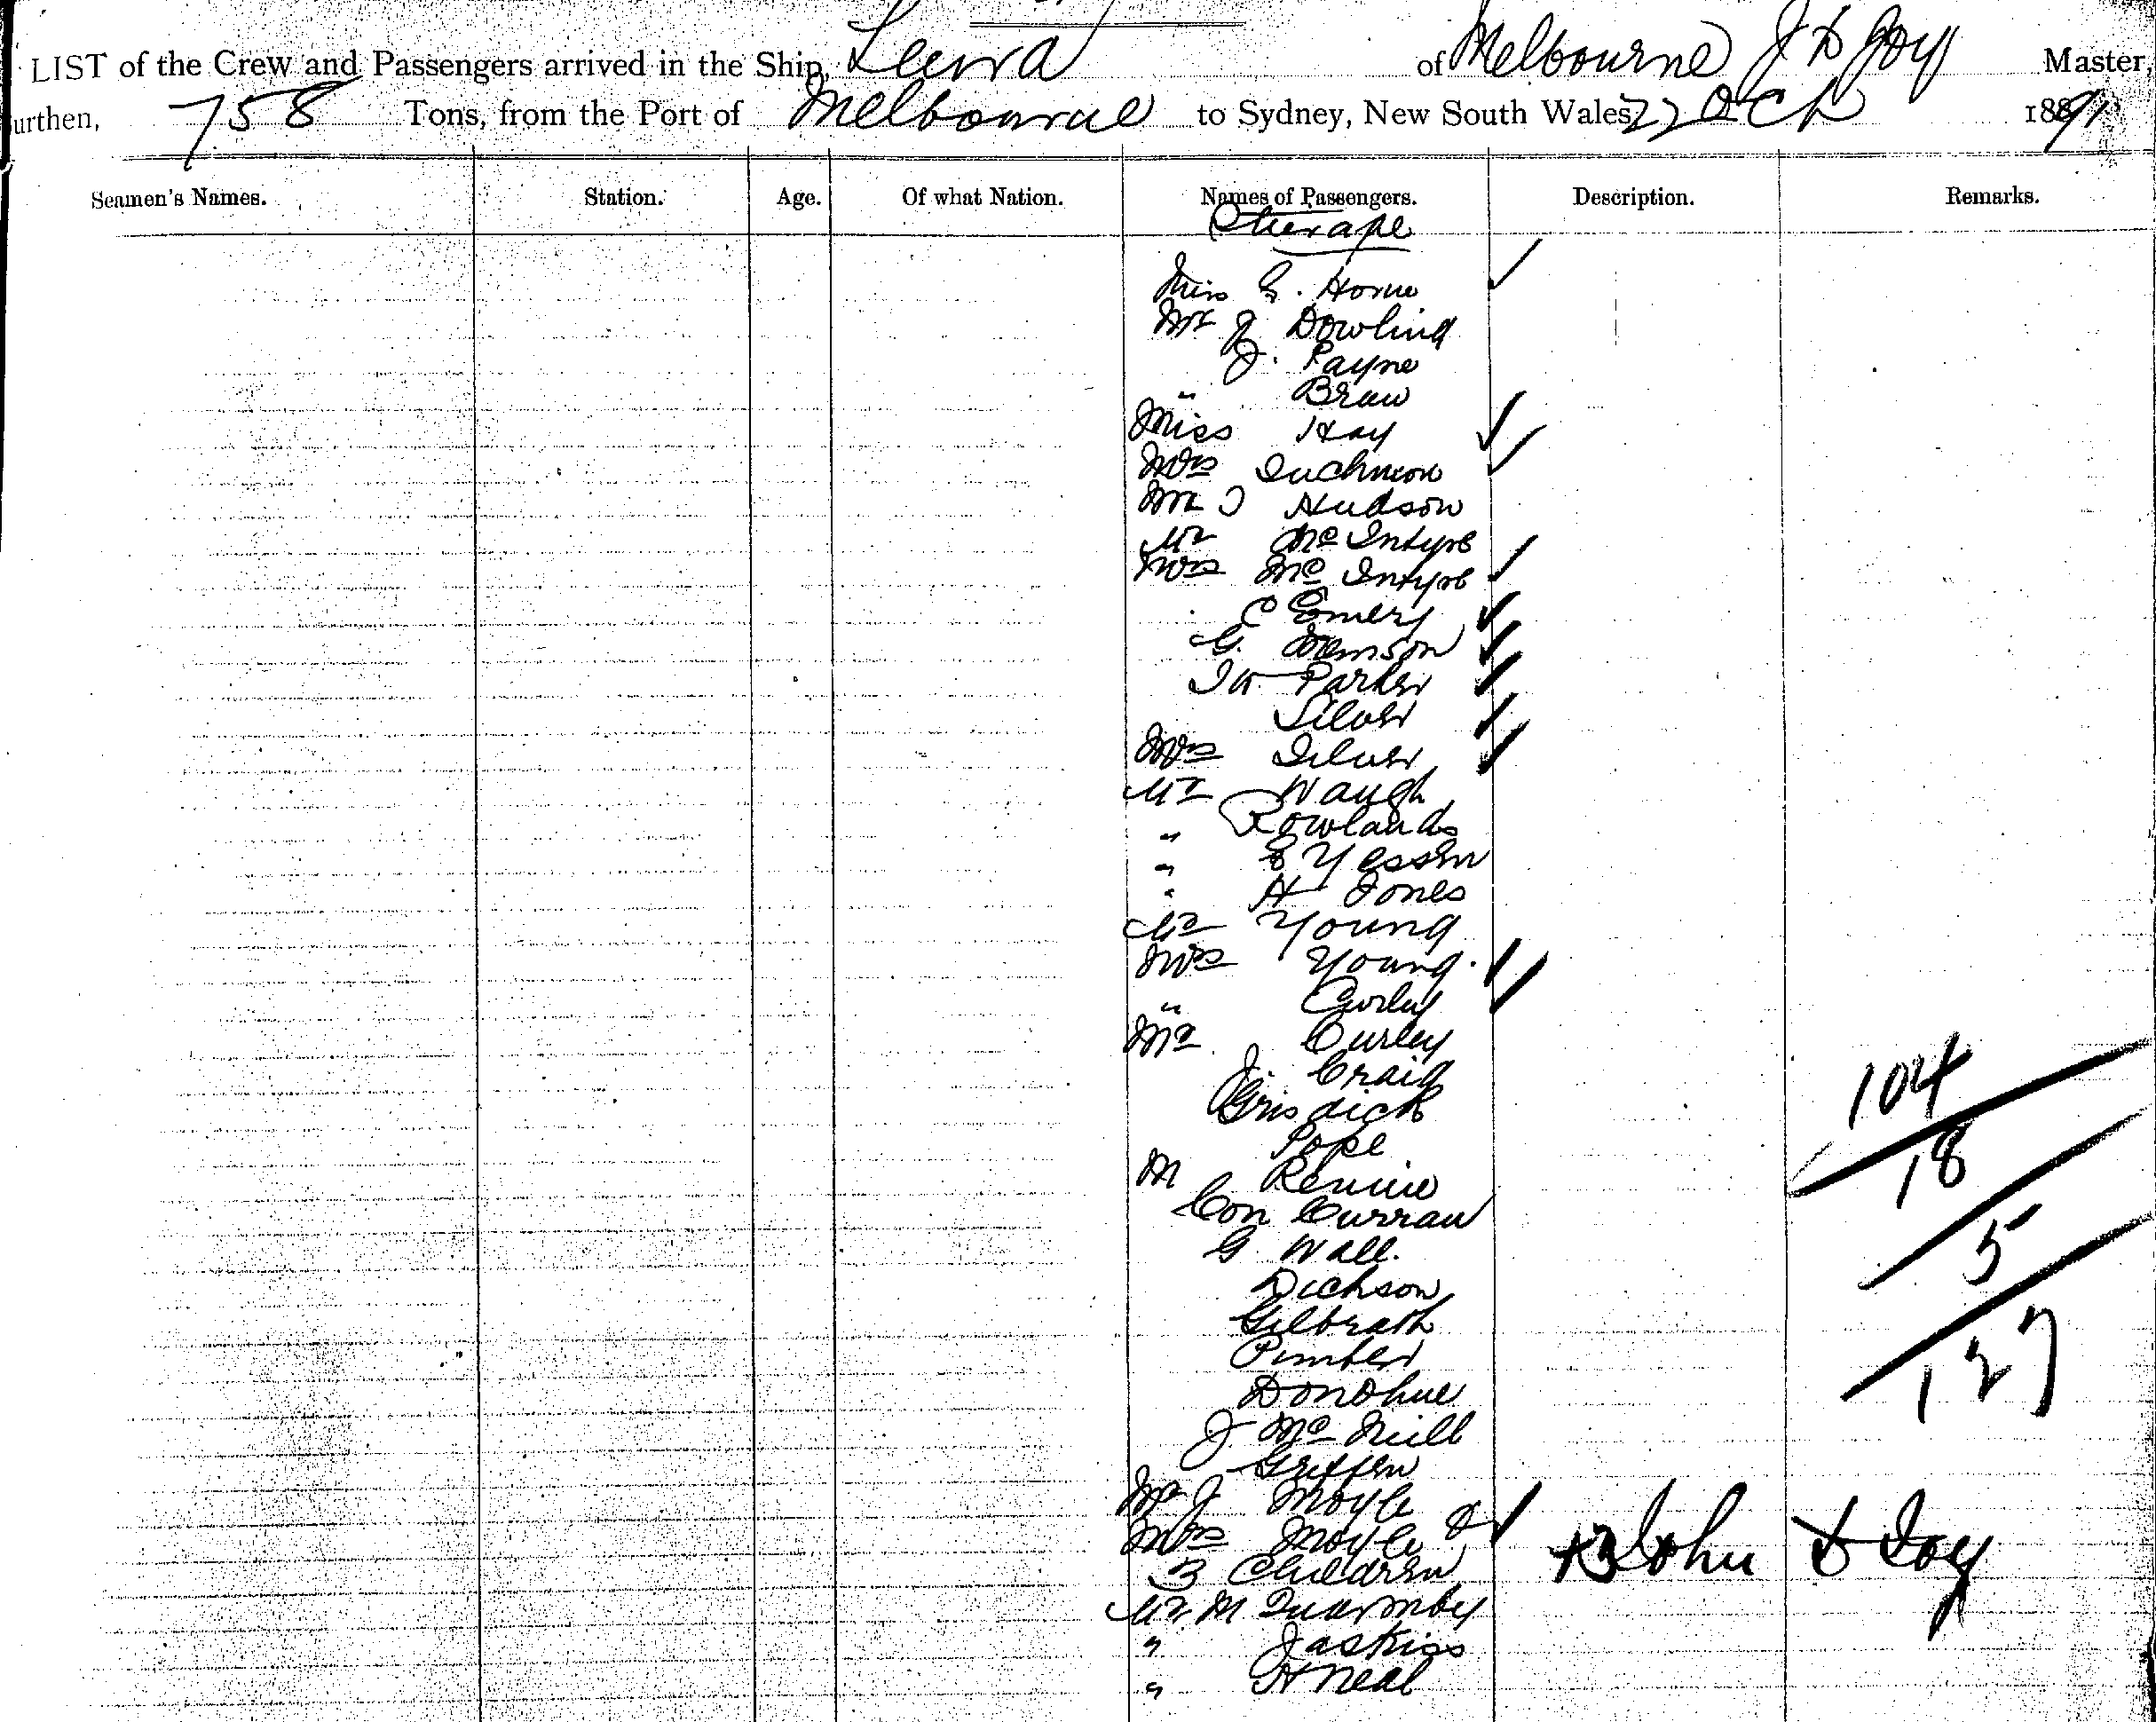 LIST of the Crew and Passengers arrived in the Ship, Leura of Melbourne J D Joy Master,
urthen, 758 Tons, from the Port of Melbourne to Sydney, New South Wales, 22 Oct 1891
Seamen's Names. Station. Age. Of what Nation. Names of Passengers. Description. Remarks.
Steerage
Miss G. Horne
Mr J Dowling
J. Payne
" Braw
Miss Hay
Mrs
Mr J Hudson
Mr McIntyre
Mrs McIntyre
C Emery
G.
Parker
Silver
Mrs Silver
Mr Waugh
" Rowlands
" Yessen
" H Jones
Mr Young
Mrs Young
" Curley
Mr Curley
J. Craig
Grisdick
Pope
M Rennie
Con Curran
G Wall.
Dickson
Gilbrath
Pimber
Donohue
J McNeill
Griffen
Mr J Moyle
Mrs Moyle &
3 Children
Mr M Quarmby
" Jaskiss
" H Neal
104
18
5
127
John D Joy